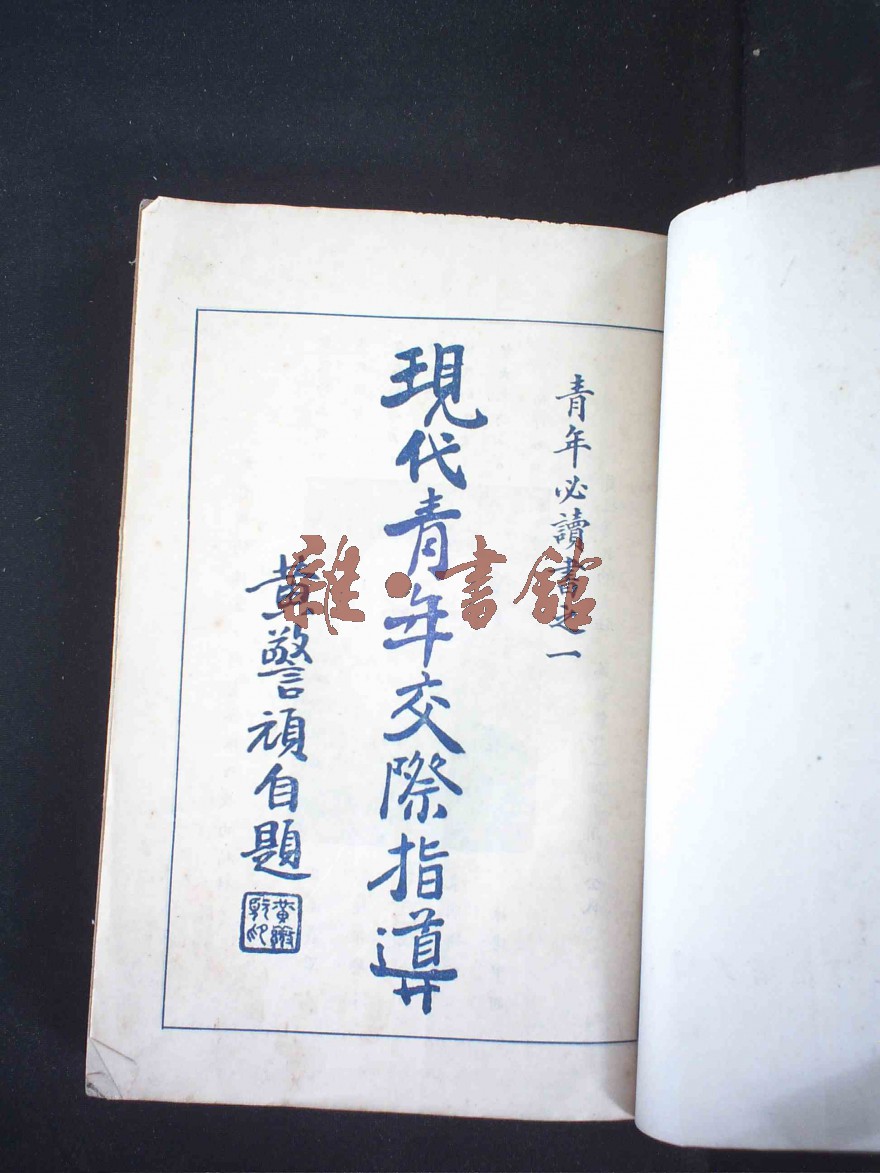 青年必讀書之一
現代青年交際指導
黄警頑自題
雜·書館